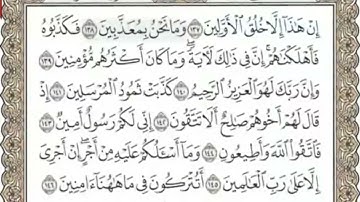 إِنْ هَٰذَآ إِلَّا خُلُقُ ٱلْأَوَّلِينَ ١٣٧ وَمَا نَحْنُ بِمُعَذَّبِينَ ١٣٨ فَكَذَّبُوهُ
فَأَهْلَكْنَٰهُمْ إِنَّ فِى ذَٰلِكَ لَءَايَةً وَمَا كَانَ أَكْثَرُهُم مُّؤْمِنِينَ ١٣٩
وَإِنَّ رَبَّكَ لَهُوَ ٱلْعَزِيزُ ٱلرَّحِيمُ ١٤٠ كَذَّبَتْ ثَمُودُ ٱلْمُرْسَلِينَ ١٤١ إِذْ
قَالَ لَهُمْ أَخُوهُمْ صَٰلِحٌ أَلَا تَتَّقُونَ ١٤٢ إِنِّى لَكُمْ رَسُولٌ أَمِينٌ ١٤٣
فَٱتَّقُوا۟ ٱللَّهَ وَأَطِيعُونِ ١٤٤ وَمَآ أَسْـَٔلُكُمْ عَلَيْهِ مِنْ أَجْرٍ إِنْ أَجْرِىَ
إِلَّا عَلَىٰ رَبِّ ٱلْعَٰلَمِينَ ١٤٥ أَتُتْرَكُونَ فِى مَا هَٰهُنَآ ءَامِنِينَ ١٤٦